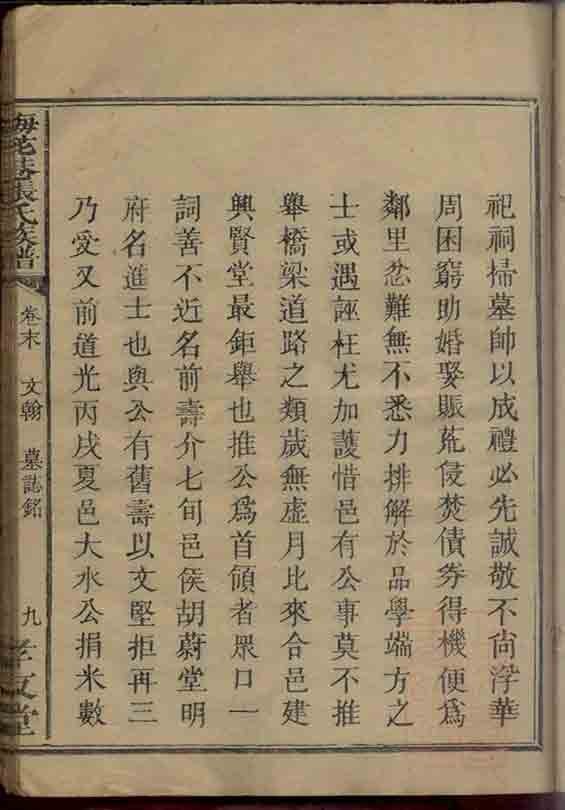 祀祠掃墓帥以成禮必先誠敬不尙浮華
周困窮助婚娶賑荒侵焚債券得機便為
鄰里忿難無不悉力排解於品學端方之
士或遇誣枉尤加護惜邑有公事莫不推
舉橋梁道路之類歲無虛月比來合邑建
興賢堂最鉅舉也推公為首領者眾口一
詞善不近名前壽介七旬邑侯胡蔚堂明
府名進士也與公有舊壽以文堅拒再三
乃受又前道光丙戌夏邑大水公捐米數
梅花巷張氏族譜
卷末 文翰 墓誌銘
九
孝友堂